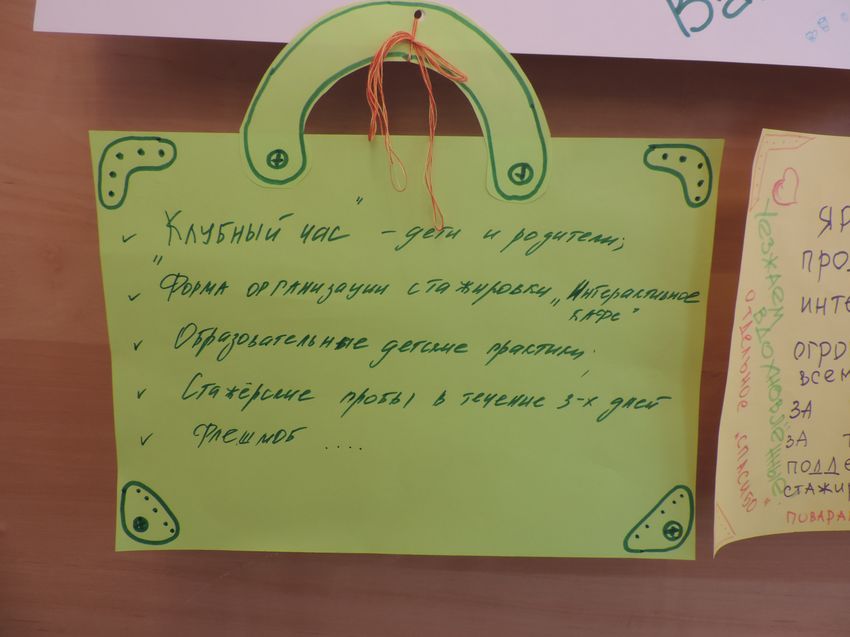 ✓ "Клубный час" - дети и родители;
✓ Форма организации стажировки „Интерактивное
кафе"
✓ Образовательные детские практики;
✓ Стажёрские пробы в течение 3-х дней
✓ Флешмоб ....
Уезжаем
вдохновлённые
отдельное спасибо
ЯР
ПРО
ИНТЕ
ОГРО
ВСЕМ
ЗА
ЗА Т
ПОДДЕ
СТАЖИР
ПОВАРА